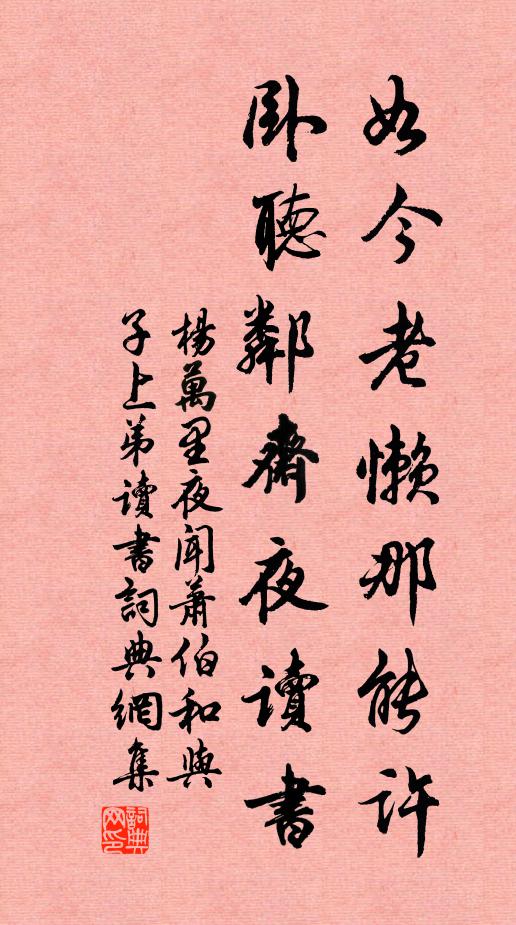 如今老懶那能許
臥聽鄰齋夜讀書
楊萬里夜聞蕭伯和與
子上弟讀書詞典網集
詞典
网印